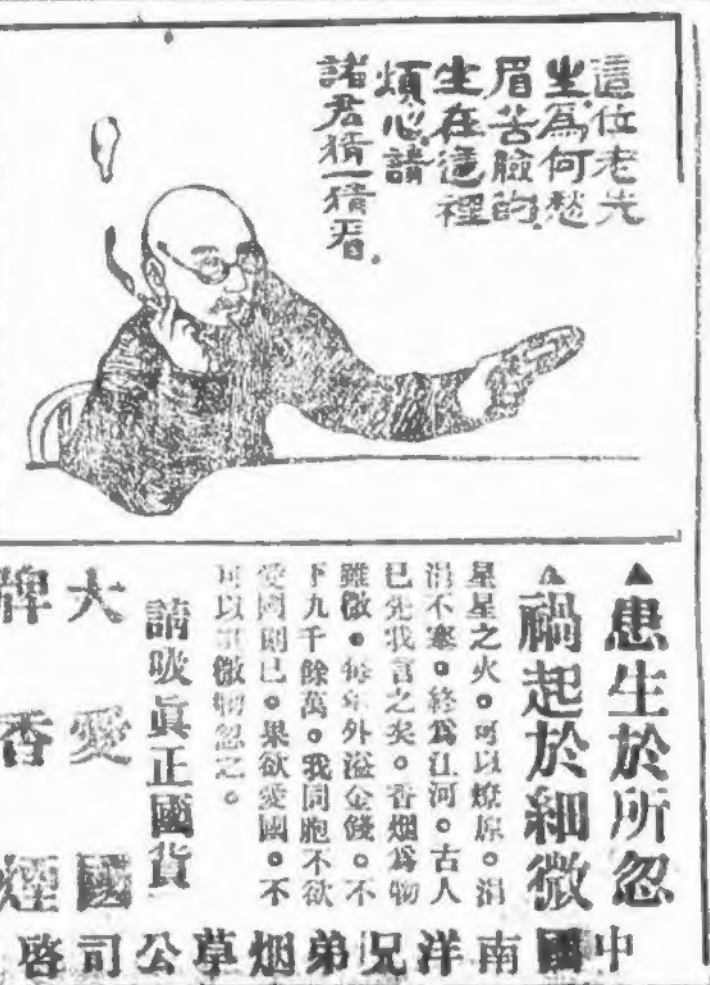 這位老先
生為何愁
眉苦臉的
坐在這裡
煩心請
諸君猜一猜看。
▲患生於所忽
▲禍起於細微
星星之火。可以燎原。涓
涓不塞。終爲江河。古人
已先我言之矣。香烟爲物
雖微。每年外溢金錢。不
下九千餘萬。我同胞不欲
愛國則已。果欲愛國。不
可以其微物忽之。
請吸眞正國貨
大愛國
牌香煙
中國南洋兄弟烟草公司啓